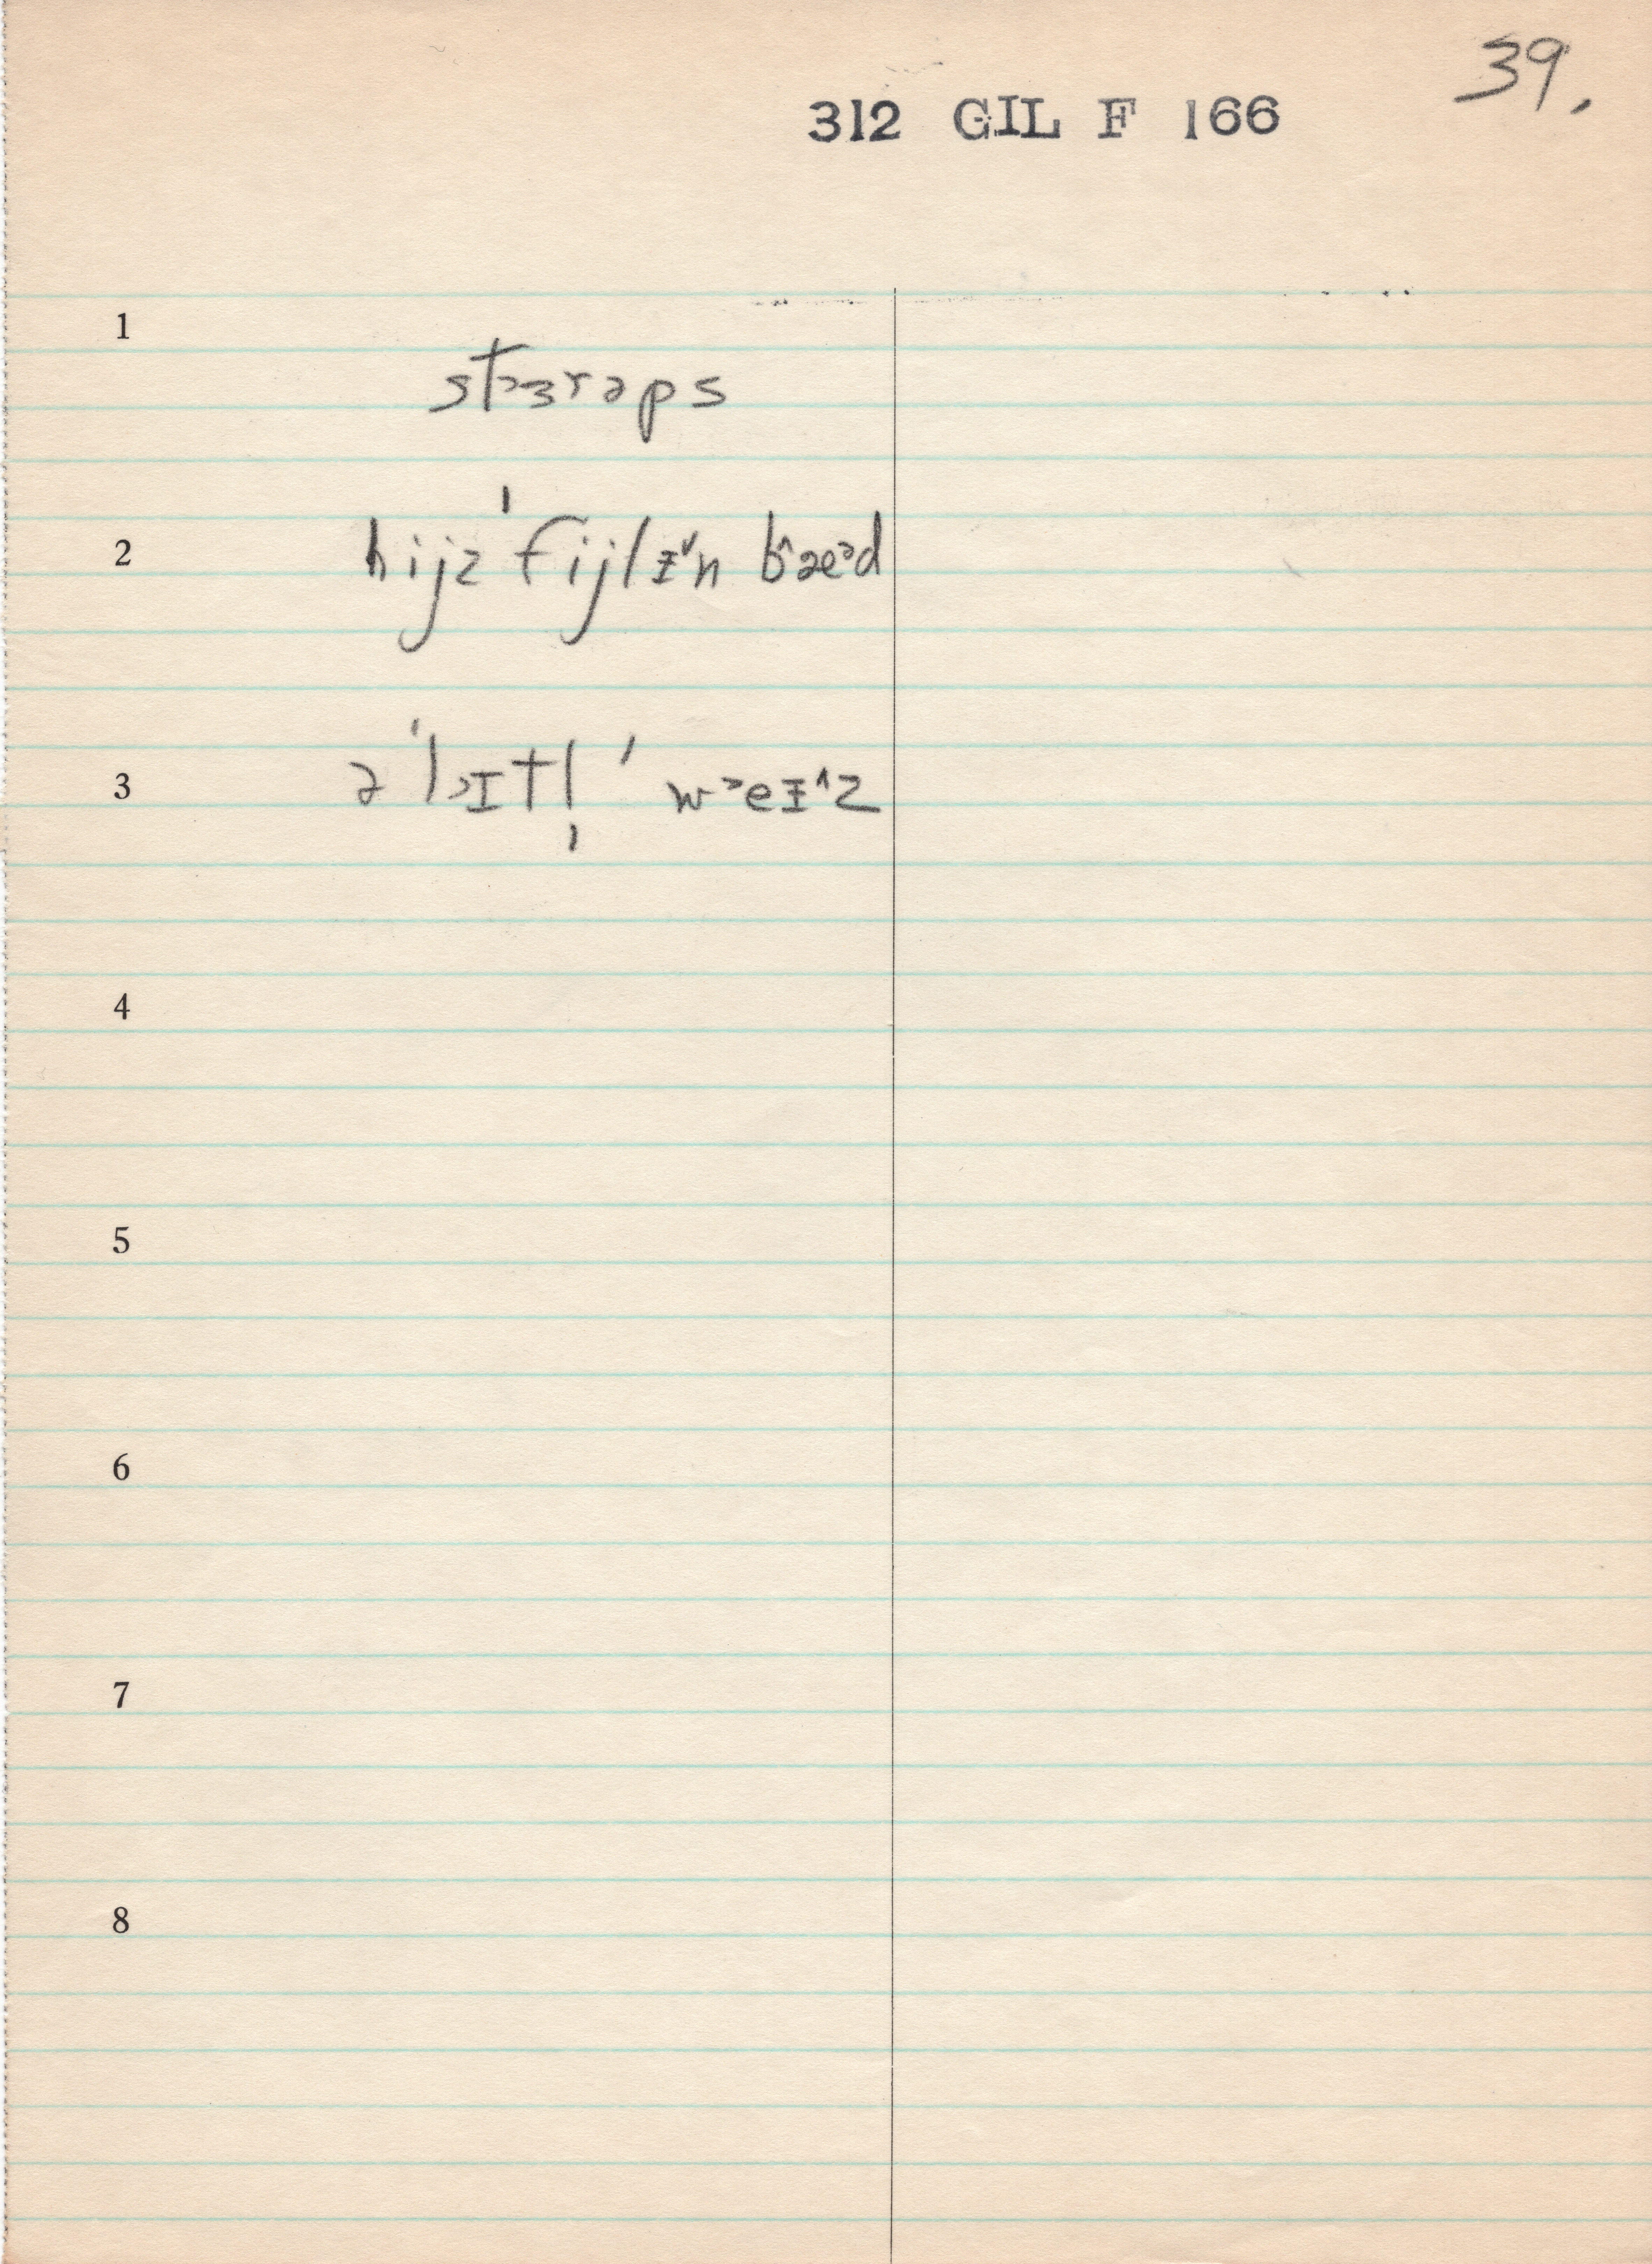 39.
312 GIL F 166
1
st˃ɜrəps
2
hijz ˈfijlɪ˅n b˄æ˃d
3
ə ˈl˃ɪtl̩ ˈ w˃eɪ˄z
4
5
6
7
8